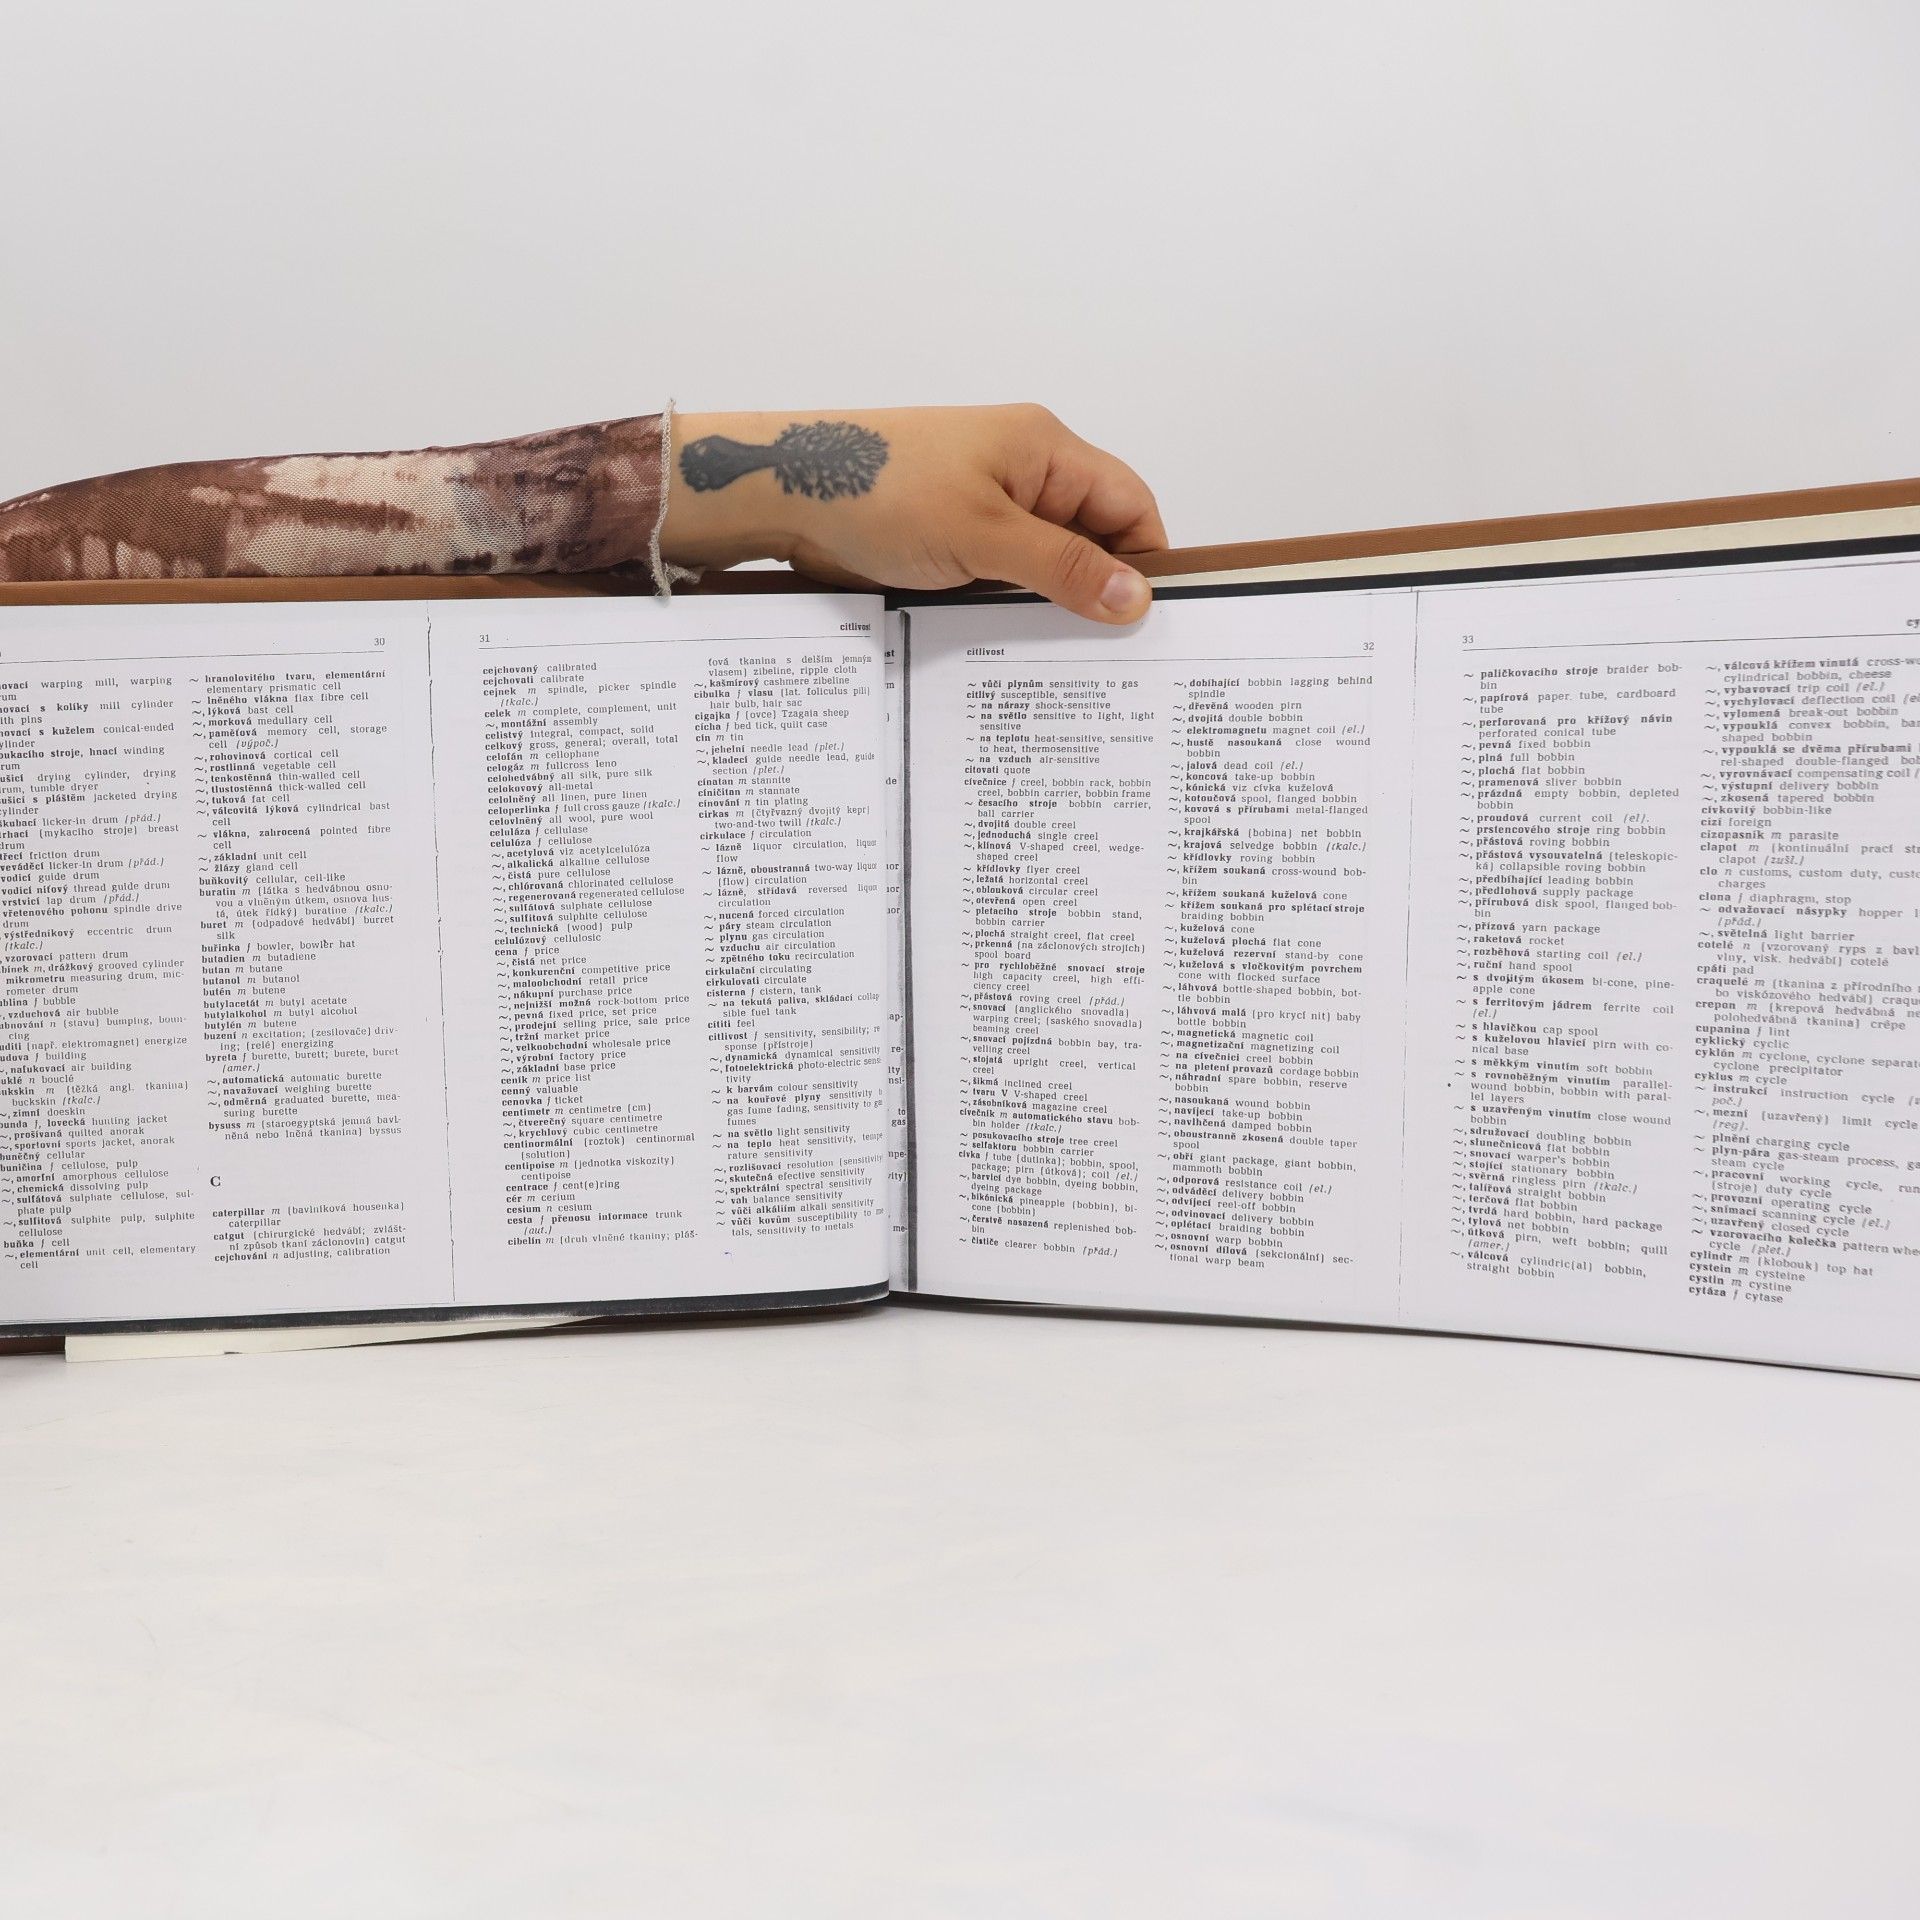 30
novací warping mill, warping
rum
novací s kolíky mill cylinder
ith pins
novací s kuželem conical-ended
ylinder
oukacího stroje, hnací winding
rum
ušicí drying cylinder, drying
rum, tumble dryer
ušicí s pláštěm jacketed drying
cylinder
škubací licker-in drum [přád.]
trhací (mykacího stroje) breast
drum
třecí friction drum
veváděcí licker-in drum [přád.]
vodicí guide drum
vodicí niťový thread guide drum
vrstvicí lap drum [přád.]
vřetenového pohonu spindle drive
drum
výstředníkový eccentric drum
[tkalc.]
vzorovací pattern drum
bínek m, drážkový grooved cylinder
mikrometru measuring drum, mic-
rometer drum
ublina f bubble
, vzduchová air bubble
ubnování n (stavu) bumping, boun-
cing
uditi (např. elektromagnet) energize
udova f building
, nafukovací air building
uklé n bouclé
ukskin m (těžká angl. tkanina)
buckskin [tkalc.]
~, zimní doeskin
bunda f, lovecká hunting jacket
~, prošívaná quilted anorak
~, sportovní sports jacket, anorak
buněčný cellular
buničina f cellulose, pulp
~, amorfní amorphous cellulose
~, chemická dissolving pulp
~, sulfátová sulphate cellulose, sul-
phate pulp
~, sulfitová sulphite pulp, sulphite
cellulose
buňka f cell
~, elementární unit cell, elementary
cell
~ hranolovitého tvaru, elementární
elementary prismatic cell
~ lněného vlákna flax fibre cell
~, lýková bast cell
~, morková medullary cell
~, paměťová memory cell, storage
cell [výpoč.]
~, rohovinová cortical cell
~, rostlinná vegetable cell
~, tenkostěnná thin-walled cell
~, tlustostěnná thick-walled cell
~, tuková fat cell
~, válcovitá lýková cylindrical bast
cell
~ vlákna, zahrocená pointed fibre
cell
~, základní unit cell
~ žlázy gland cell
buňkovitý cellular, cell-like
buratin m (látka s hedvábnou osno-
vou a vlněným útkem, osnova hus-
tá, útek řídký) buratine [tkalc.]
buret m (odpadové hedvábí) burret
silk
buřinka f bowler, bowler hat
butadien m butadiene
butan m butane
butanol m butanol
butén m butene
butylacetát m butyl acetate
butylalkohol m butyl alcohol
butylén m butene
buzení n excitation; (zesilovače) driv-
ing; (relé) energizing
byreta f burette, burett; burete, buret
[amer.]
~, automatická automatic burette
~, navažovací weighing burette
~, odměrná graduated burette, mea-
suring burette
bysuss m (staroegyptská jemná bavl-
něná nebo lněná tkanina) byssus
C
caterpillar m (bavlníková housenka)
caterpillar
catgut (chirurgické hedvábí; zvlášt-
ní způsob tkaní záclonovin) catgut
cejchování n adjusting, calibration
31
citlivost
cejchovaný calibrated
cejchovati calibrate
cejnek m spindle, picker spindle
[tkalc.]
celek m complete, complement, unit
~, montážní assembly
celistvý integral, compact, solid
celkový gross, general; overall, total
celofán m cellophane
celogáz m fullcross leno
celohedvábný all silk, pure silk
celokovový all-metal
celolněný all linen, pure linen
celoperlinka f full cross gauze [tkalc.]
celovlněný all wool, pure wool
celulóza f cellulase
celulóza f cellulose
~, acetylová viz acetylcelulóza
~, alkalická alkaline cellulose
~, čistá pure cellulose
~, chlórovaná chlorinated cellulose
~, regenerovaná regenerated cellulose
~, sulfátová sulphate cellulose
~, sulfitová sulphite cellulose
~, technická (wood) pulp
celulózový cellulosic
cena f price
~, čistá net price
~, konkurenční competitive price
~, maloobchodní retail price
~, nákupní purchase price
~, nejnižší možná rock-bottom price
~, pevná fixed price, set price
~, prodejní selling price, sale price
~, tržní market price
~, velkoobchodní wholesale price
~, výrobní factory price
~, základní base price
ceník m price list
cenný valuable
cenovka f ticket
centimetr m centimetre (cm)
~, čtverečný square centimetre
~, krychlový cubic centimetre
centinormální (roztok) centinormal
(solution)
centipoise m (jednotka viskozity)
centipoise
centrace f cent(e)ring
cér m cerium
cesium n cesium
cesta f přenosu informace trunk
[aut.]
cibelín m (druh vlněné tkaniny; pláš-
ťová tkanina s delším jemným
vlasem) zibeline, ripple cloth
~, kašmírový cashmere zibeline
cibulka f vlasu (lat. foliculus pili)
hair bulb, hair sac
cigajka f (ovce) Tzagaia sheep
cícha f bed tick, quilt case
cín m tin
~, jehelní needle lead [plet.]
~, kladecí guide needle lead, guide
section [plet.]
cínatan m stannite
cíničitan m stannate
cínování n tin plating
cirkas m (čtyřvazný dvojitý kepr)
two-and-two twill [tkalc.]
cirkulace f circulation
~ lázně liquor circulation, liquor
flow
~ lázně, oboustranná two-way liquor
(flow) circulation
~ lázně, střídavá reversed liquor
circulation
~, nucená forced circulation
~ páry steam circulation
~ plynu gas circulation
~ vzduchu air circulation
~ zpětného toku recirculation
cirkulační circulating
cirkulovati circulate
cisterna f cistern, tank
~ na tekutá paliva, skládací collap
sible fuel tank
cítiti feel
citlivost f sensitivity, sensibility; re
sponse (přístroje)
~, dynamická dynamical sensitivity
~, fotoelektrická photo-electric sens
tivity
~ k barvám colour sensitivity
~ na kouřové plyny sensitivity
gas fume fading, sensitivity to ga
fumes
~ na světlo light sensitivity
~ na teplo heat sensitivity, tempe
rature sensitivity
~, rozlišovací resolution (sensitivity
~, skutečná efective sensitivity
~, spektrální spectral sensitivity
~ vah balance sensitivity
~ vůči alkáliím alkali sensitivity
~ vůči kovům susceptibility to me
tals, sensitivity to metals
citlivost
32
~ vůči plynům sensitivity to gas
citlivý susceptible, sensitive
~ na nárazy shock-sensitive
~ na světlo sensitive to light, light
sensitive
~ na teplotu heat-sensitive, sensitive
to heat, thermosensitive
~ na vzduch air-sensitive
citovati quote
cívečnice f creel, bobbin rack, bobbin
creel, bobbin carrier, bobbin frame
~ česacího stroje bobbin carrier,
ball carrier
~, dvojitá double creel
~, jednoduchá single creel
~, klínová V-shaped creel, wedge-
shaped creel
~, křídlovky flyer creel
~, ležatá horizontal creel
~, oblouková circular creel
~, otevřená open creel
~ pletacího stroje bobbin stand,
bobbin carrier
~, plochá straight creel, flat creel
~, prkenná (na záclonových strojích)
spool board
~ pro rychloběžné snovací stroje
high capacity creel, high effi-
ciency creel
~, přástová roving creel [přád.]
~, snovací (anglického snovadla)
warping creel; (saského snovadla)
beaming creel
~, snovací pojízdná bobbin bay, tra-
velling creel
~, stojatá upright creel, vertical
creel
~, šikmá inclined creel
~ tvaru V V-shaped creel
~, zásobníková magazine creel
cívečník m automatického stavu bob-
bin holder [tkalc.]
~ posukovacího stroje tree creel
~ selfaktoru bobbin carrier
cívka f tube (dutinka); bobbin, spool,
package; pirn (útková); coil [el.]
~, barvicí dye bobbin, dyeing bobbin,
dyeing package
~, bikónická pineapple (bobbin), bi-
cone (bobbin)
~, čerstvě nasazená replenished bob-
bin
~ čističe clearer bobbin [přád.]
~, dobíhající bobbin lagging behind
spindle
~, dřevěná wooden pirn
~, dvojitá double bobbin
~ elektromagnetu magnet coil [el.]
~, hustě nasoukaná close wound
bobbin
~, jalová dead coil [el.]
~, koncová take-up bobbin
~, kónická viz cívka kuželová
~, kotoučová spool, flanged bobbin
~, kovová s přírubami metal-flanged
spool
~, krajkářská (bobina) net bobbin
~, krajová selvedge bobbin [tkalc.]
~ křídlovky roving bobbin
~, křížem soukaná cross-wound bob-
bin
~, křížem soukaná kuželová cone
~ křížem soukaná pro splétací stroje
braiding bobbin
~, kuželová cone
~, kuželová plochá flat cone
~, kuželová rezervní stand-by cone
~, kuželová s vločkovitým povrchem
cone with flocked surface
~, láhvová bottle-shaped bobbin, bot-
tle bobbin
~, láhvová malá (pro krycí nit) baby
bottle bobbin
~, magnetická magnetic coil
~, magnetizační magnetizing coil
~ na cívečnici creel bobbin
~ na pletení provazů cordage bobbin
~, náhradní spare bobbin, reserve
bobbin
~, nasoukaná wound bobbin
~, navíjecí take-up bobbin
~, navlhčená damped bobbin
~, oboustranně zkosená double taper
spool
~, obří giant package, giant bobbin,
mammoth bobbin
~, odporová resistance coil [el.]
~, odváděcí delivery bobbin
~, odvíjecí reel-off bobbin
~, odvinovací delivery bobbin
~, oplétací braiding bobbin
~, osnovní warp bobbin
~, osnovní dílová (sekcionální) sec-
tional warp beam
33
cy
~ paličkovacího stroje braider bob-
bin
~, papírová paper tube, cardboard
tube
~, perforovaná pro křížový návin
perforated conical tube
~, pevná fixed bobbin
~, plná full bobbin
~, plochá flat bobbin
~, pramenová sliver bobbin
~, prázdná empty bobbin, depleted
bobbin
~, proudová current coil [el].
~ prstencového stroje ring bobbin
~, přástová roving bobbin
~, přástová vysouvatelná (teleskopic-
ká) collapsible roving bobbin
~, předbíhající leading bobbin
~, předlohová supply package
~, přírubová disk spool, flanged bob-
bin
~, přízová yarn package
~, raketová rocket
~, rozběhová starting coil [el.]
~, ruční hand spool
~ s dvojitým úkosem bi-cone, pine-
apple cone
~ s ferritovým jádrem ferrite coil
[el.]
~ s hlavičkou cap spool
~ s kuželovou hlavicí pirn with co-
nical base
~ s měkkým vinutím soft bobbin
~ s rovnoběžným vinutím parallel-
wound bobbin, bobbin with paral-
lel layers
~ s uzavřeným vinutím close wound
bobbin
~, sdružovací doubling bobbin
~, slunečnicová flat bobbin
~, snovací warper's bobbin
~, stojící stationary bobbin
~, svěrná ringless pirn [tkalc.]
~, talířová straight bobbin
~, terčová flat bobbin
~, tvrdá hard bobbin, hard package
~, tylová net bobbin
~, útková pirn, weft bobbin; quill
[amer.]
~, válcová cylindric(al) bobbin,
straight bobbin
~, válcová křížem vinutá cross-wo
cylindrical bobbin, cheese
~, vybavovací trip coil [el.]
~, vychylovací deflection coil [e
~, vylomená break-out bobbin
~, vypouklá convex bobbin, bar
shaped bobbin
~, vypouklá se dvěma přírubami
rel-shaped double-flanged bob
~, vyrovnávací compensating coil
~, výstupní delivery bobbin
~, zkosená tapered bobbin
cívkovitý bobbin-like
cizí foreign
cizopasník m parasite
clapot m (kontinuální prací str
clapot [zušl.]
clo n customs, custom duty, custo
charges
clona f diaphragm, stop
~ odvažovací násypky hopper l
[přád.]
~, světelná light barrier
cotelé n (vzorovaný ryps z bavl
vlny, visk. hedvábí) cotelé
cpáti pad
craquelé m (tkanina z přírodního n
bo viskózového hedvábí) craqu
crepon m (krepová hedvábná ne
polohedvábná tkanina) crêpe
cupanina f lint
cyklický cyclic
cyklón m cyclone, cyclone separato
cyclone precipitator
cyklus m cycle
~ instrukcí instruction cycle [v
poč.]
~, mezní (uzavřený) limit cycle
[reg].
~ plnění charging cycle
~ plyn-pára gas-steam process, ga
steam cycle
~, pracovní working cycle, run
(stroje) duty cycle
~, provozní operating cycle
~, snímací scanning cycle [el.]
~, uzavřený closed cycle
~ vzorovacího kolečka pattern whe
cycle [plet.]
cylindr m (klobouk) top hat
cystein m cysteine
cystin m cystine
cytáza f cytase